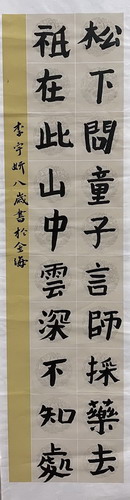 松下問童子言師採藥去
祇在此山中雲深不知處
李宇妍八歲書於全海